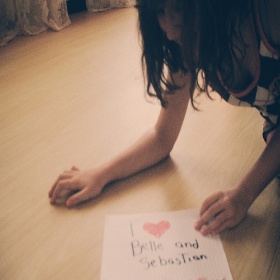 I ❤
Belle and
Sebastian